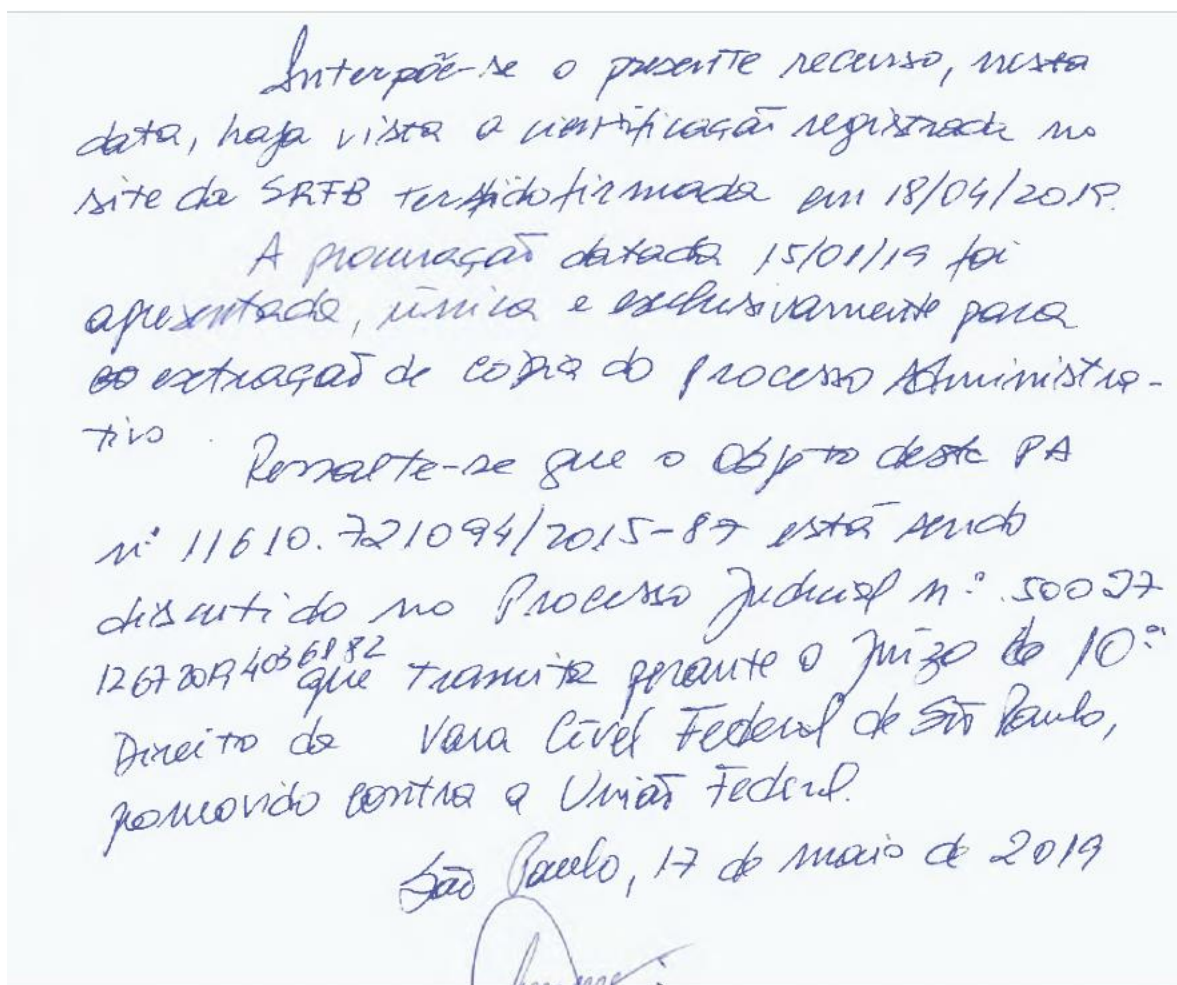 Interpõe-se o presente recurso, nesta
data, haja vista a cientificação registrada no
site da SRFB ter sido firmada em 18/04/2019.
A procuração datada 15/01/19 foi
apresentada, única e exclusivamente para
extração de cópia do Processo Administra-
tivo.
Ressalte-se que o objeto deste PA
nº 11610.721094/2015-87 está sendo
discutido no Processo Judicial nº. 50027
126720194036182 que tramita perante o Juízo de 10ª
Direito da Vara Cível Federal de São Paulo,
promovido contra a União Federal.
São Paulo, 17 de maio de 2019